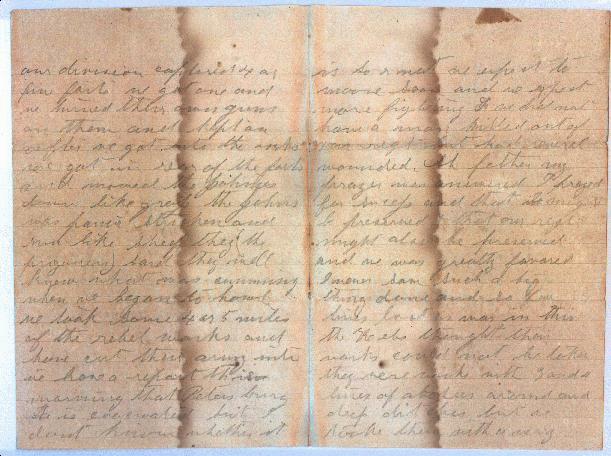 our division captured 4 or
five forts we got one and
we turned their own guns
on them and kept on
after we got into the works
we got in rear of the forts
and mowed the johnies
down like grass the johnies
was panic stricken and
run like sheep they (the
prisoners) said they didl
know what was cumming
when we began to howl
we took some 4 or 5 miles
of the rebel works and
have cut their army into
we have a report this
morning that Petersburg
is evacuated but I
dont know whether it
is so or not we expect to
moove soon and we expect
more fighting we did not
have a man killed out of
our regiment had several
wounded. Oh father my
prayer was answered I prayed
for success and that we might
be preserved that our reg
might also be preserved
and we was greatly favored
I never saw such a big
thing done and so few
lives lost as was in this
the Rebs thought their
works could not be taken
they were with 3 and 4
lines of abatis around and
deep ditches but we
took them with every